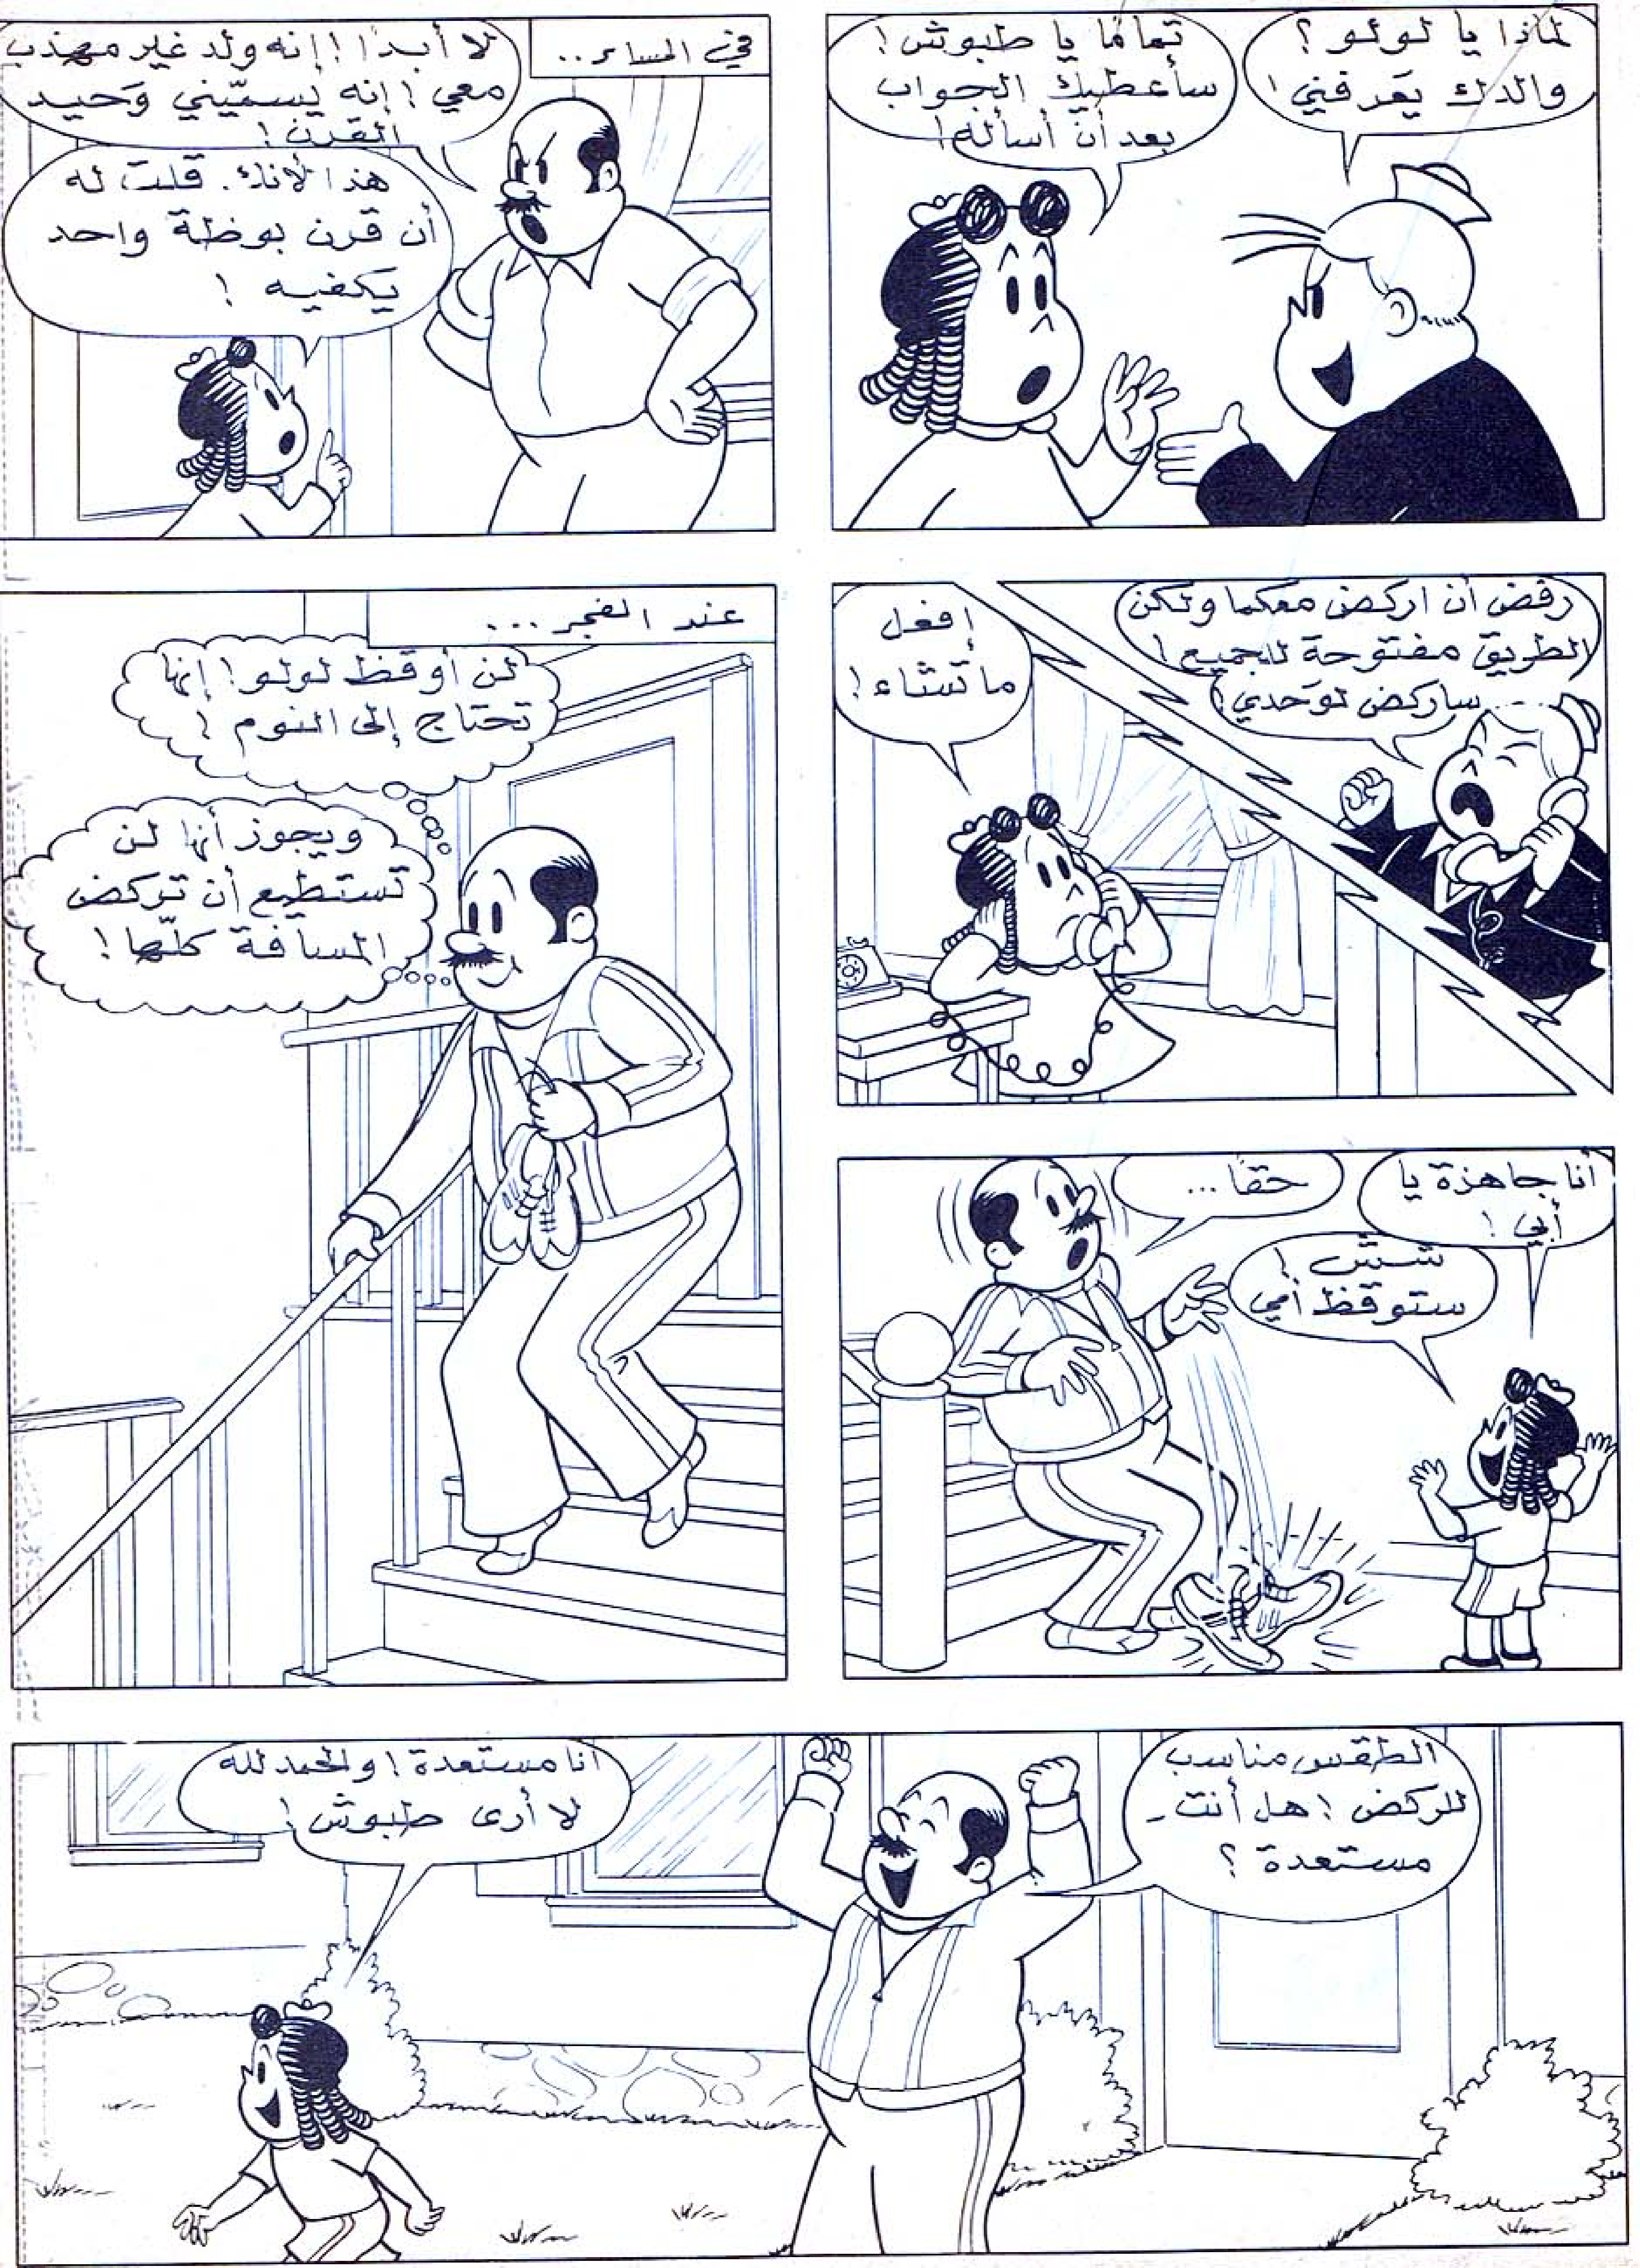 لماذا يا لولو؟
والدك يعرفني!
تمامًا يا طبوش!
سأعطيك الجواب
بعد أن أسأله!
في المساء..
لا أبدًا! إنه ولد غير مهذب
معي! إنه يسمّيني وَحيد
القرن!
هذا لأنك. قلت له
أن قرن بوظة واحد
يكفيه!
رفض أن اركض معكما ولكن
الطريق مفتوحة للجميع!
ساركض لوَحدي!
إفعل
ما تشاء!
عند الفجر...
لن أوقظ لولو! إنها
تحتاج إلى النوم!
ويجوز أنها لن
تستطيع أن تركض
المسافة كلّها!
أنا جاهزة يا
أبي!
حقًا...
شششّ!
ستوقظ أمي
الطقس مناسب
للركض! هل أنت
مستعدة؟
انا مستعدة! والحمد لله
لا أرى طبوش!